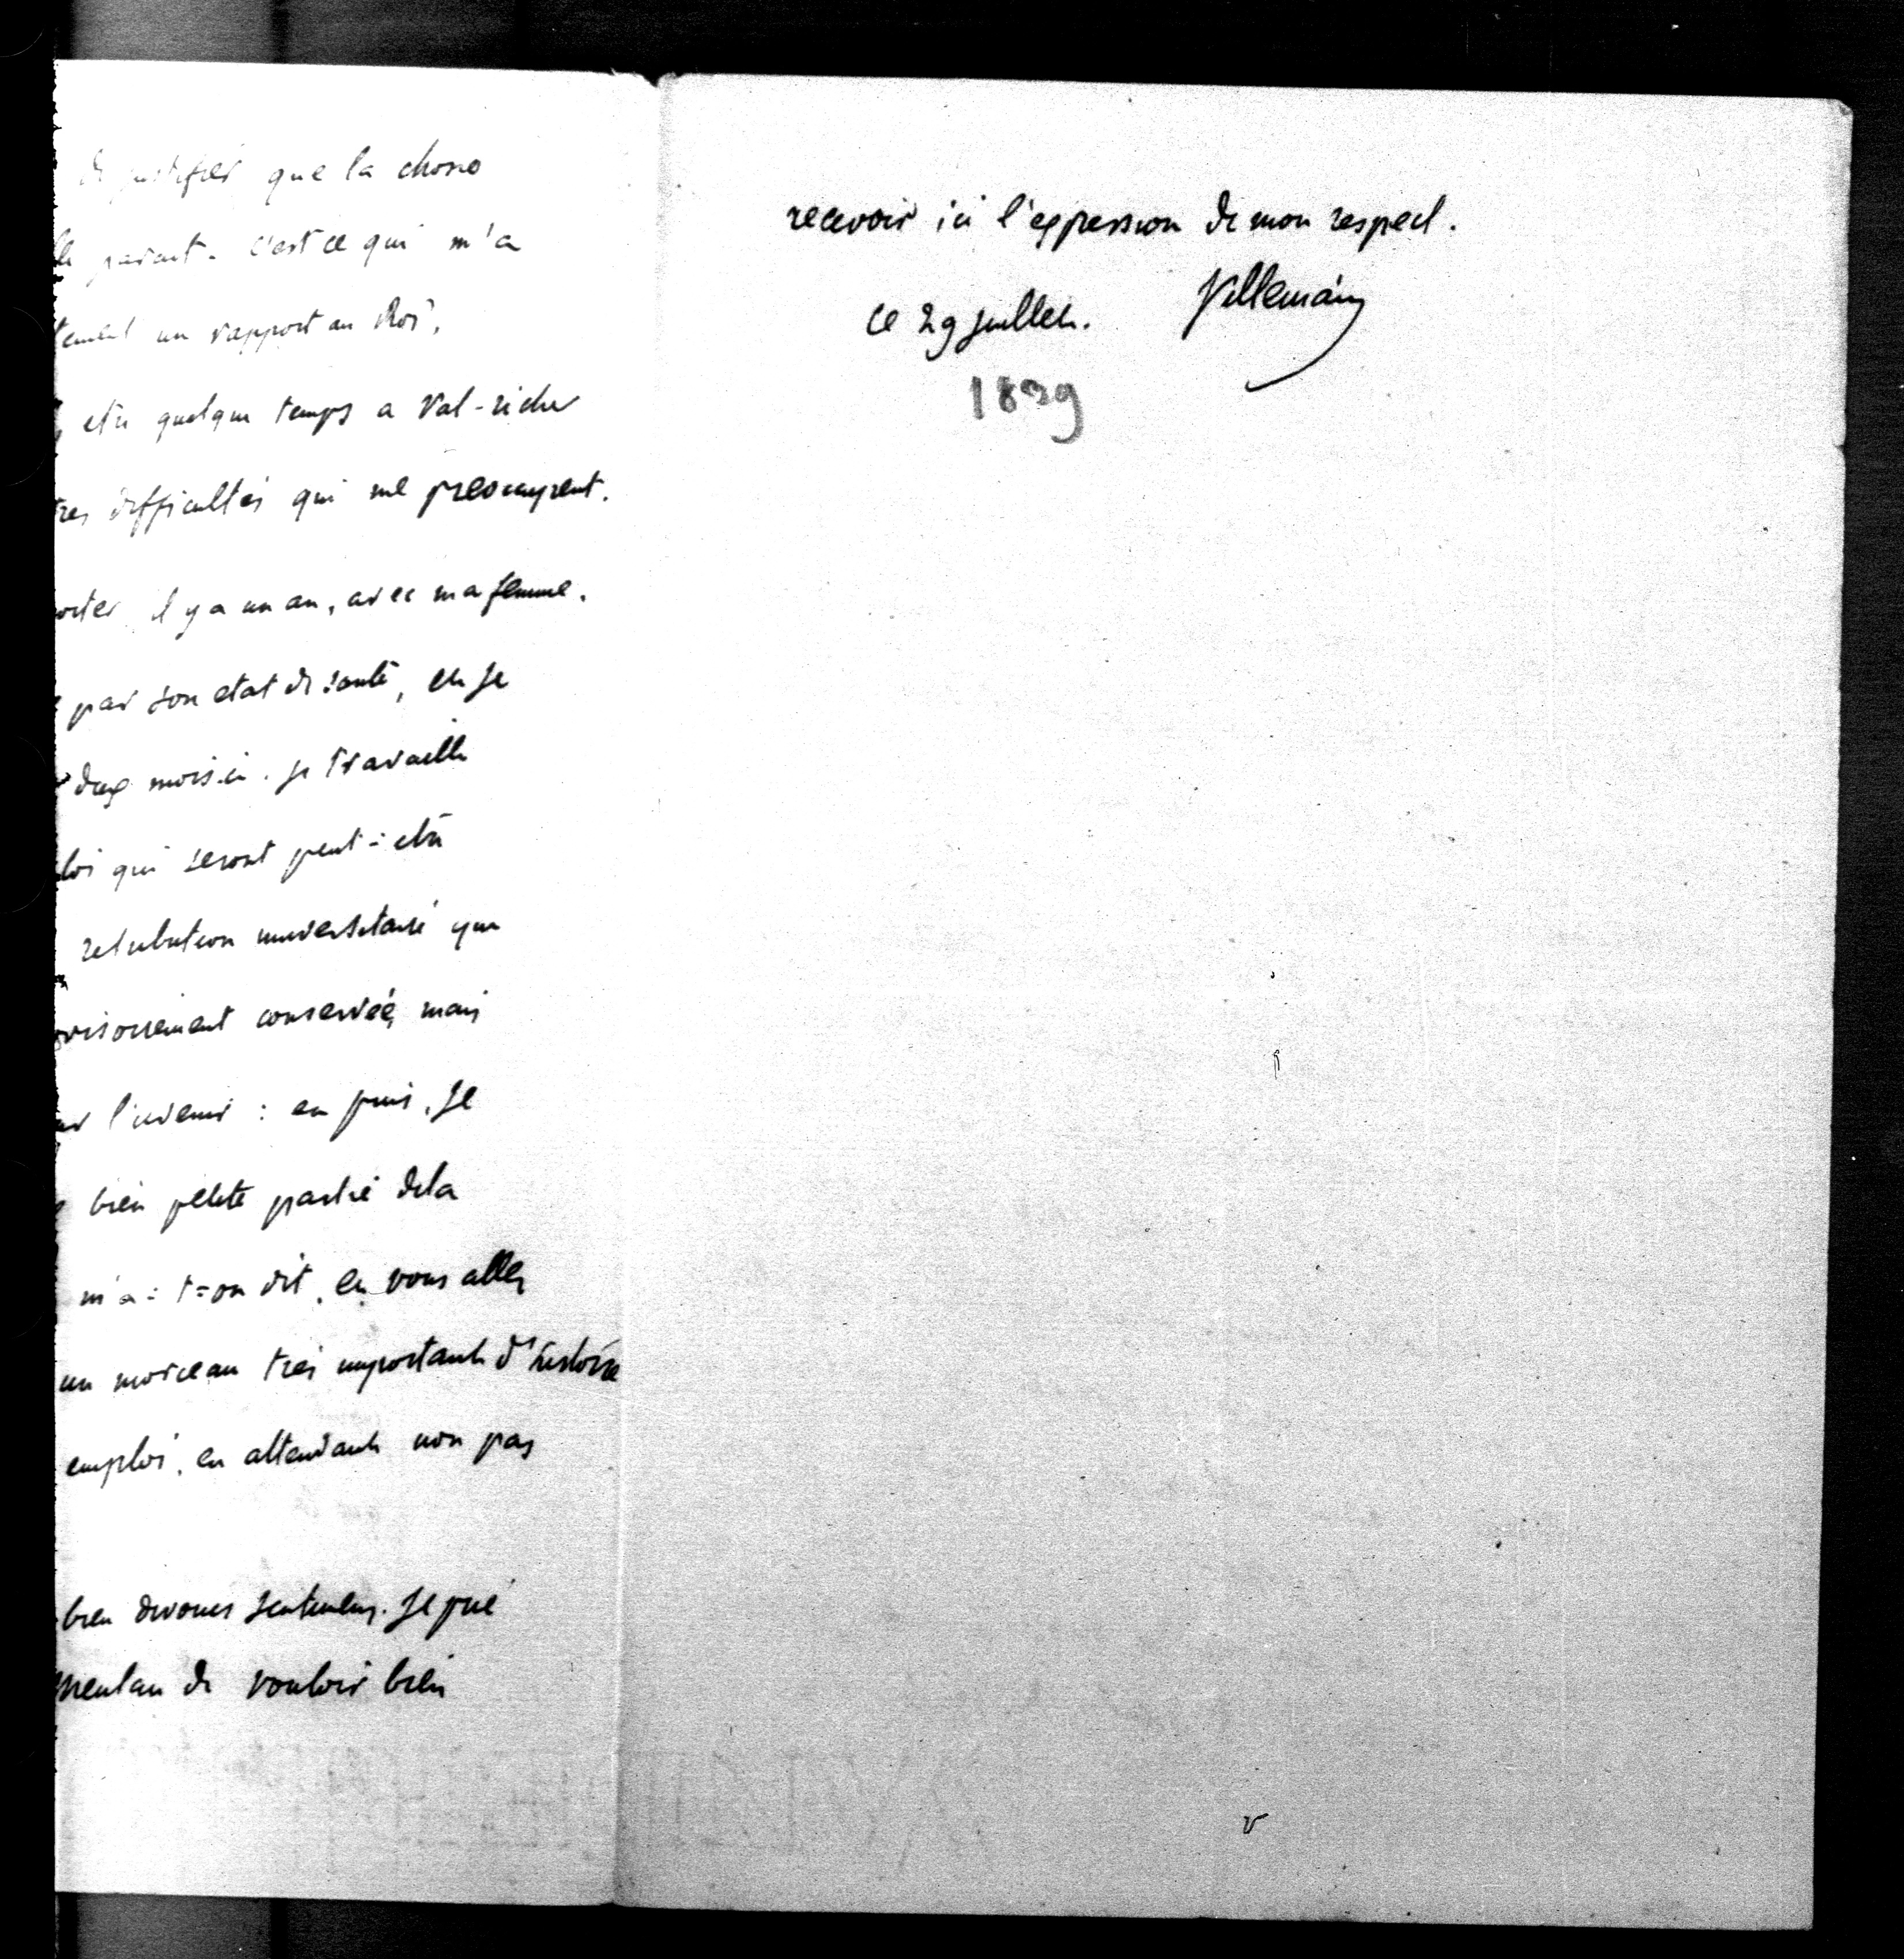 de justifier que la chose
parait. c'est ce qui m'a
un rapport au Roi,
etre quelque temps a Val-richer
difficultés qui me preoccupent.
il y a un an, avec ma femme.
par son etat de santé, et je
deux mois-ci. je travaille
loi qui seront peut-etre
retribution universitaire que
conservée, mais
l'avenir : en puis, je
bien petite partie de la
m'a-t-on dit, et vous allez
un morceau tres important d'histoire
emploi, en attendant non pas
bien devoues sentimens. je prie
de vouloir bien
recevoir ici l'expression de mon respect.
ce 29 juillet. Villemain
1839